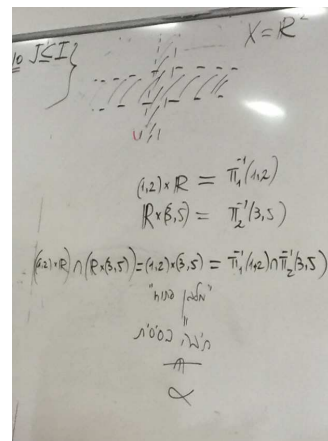 X = ℝ²
J ⊆ I }
(1,2) × ℝ = π₁⁻¹(1,2)
ℝ × (3,5) = π₂⁻¹(3,5)
((1,2) × ℝ) ∩ (ℝ × (3,5)) = (1,2) × (3,5) = π₁⁻¹(1,2) ∩ π₂⁻¹(3,5)
"מלבן פתוח"
"
בסיסית
⋔
α